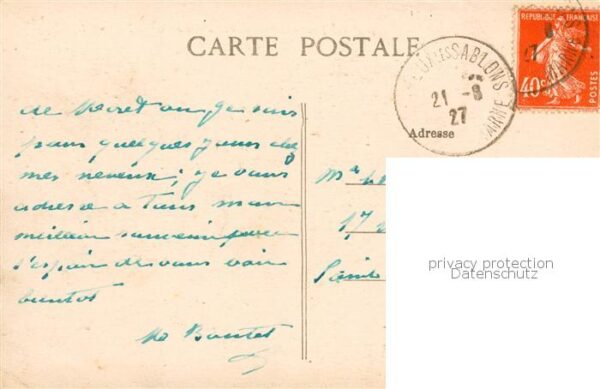 CARTE POSTALE
REPUBLIQUE FRANÇAISE
40c
POSTES
SABLONS
21 -8
27
MARNE
Adresse
de Moret ou je suis
pour quelques jours chez
mes neveux; je vous
adresse a tous mon
meilleur souvenir
l'espoir de vous voir
bientot
Me Boutet
17
privacy protection
Datenschutz